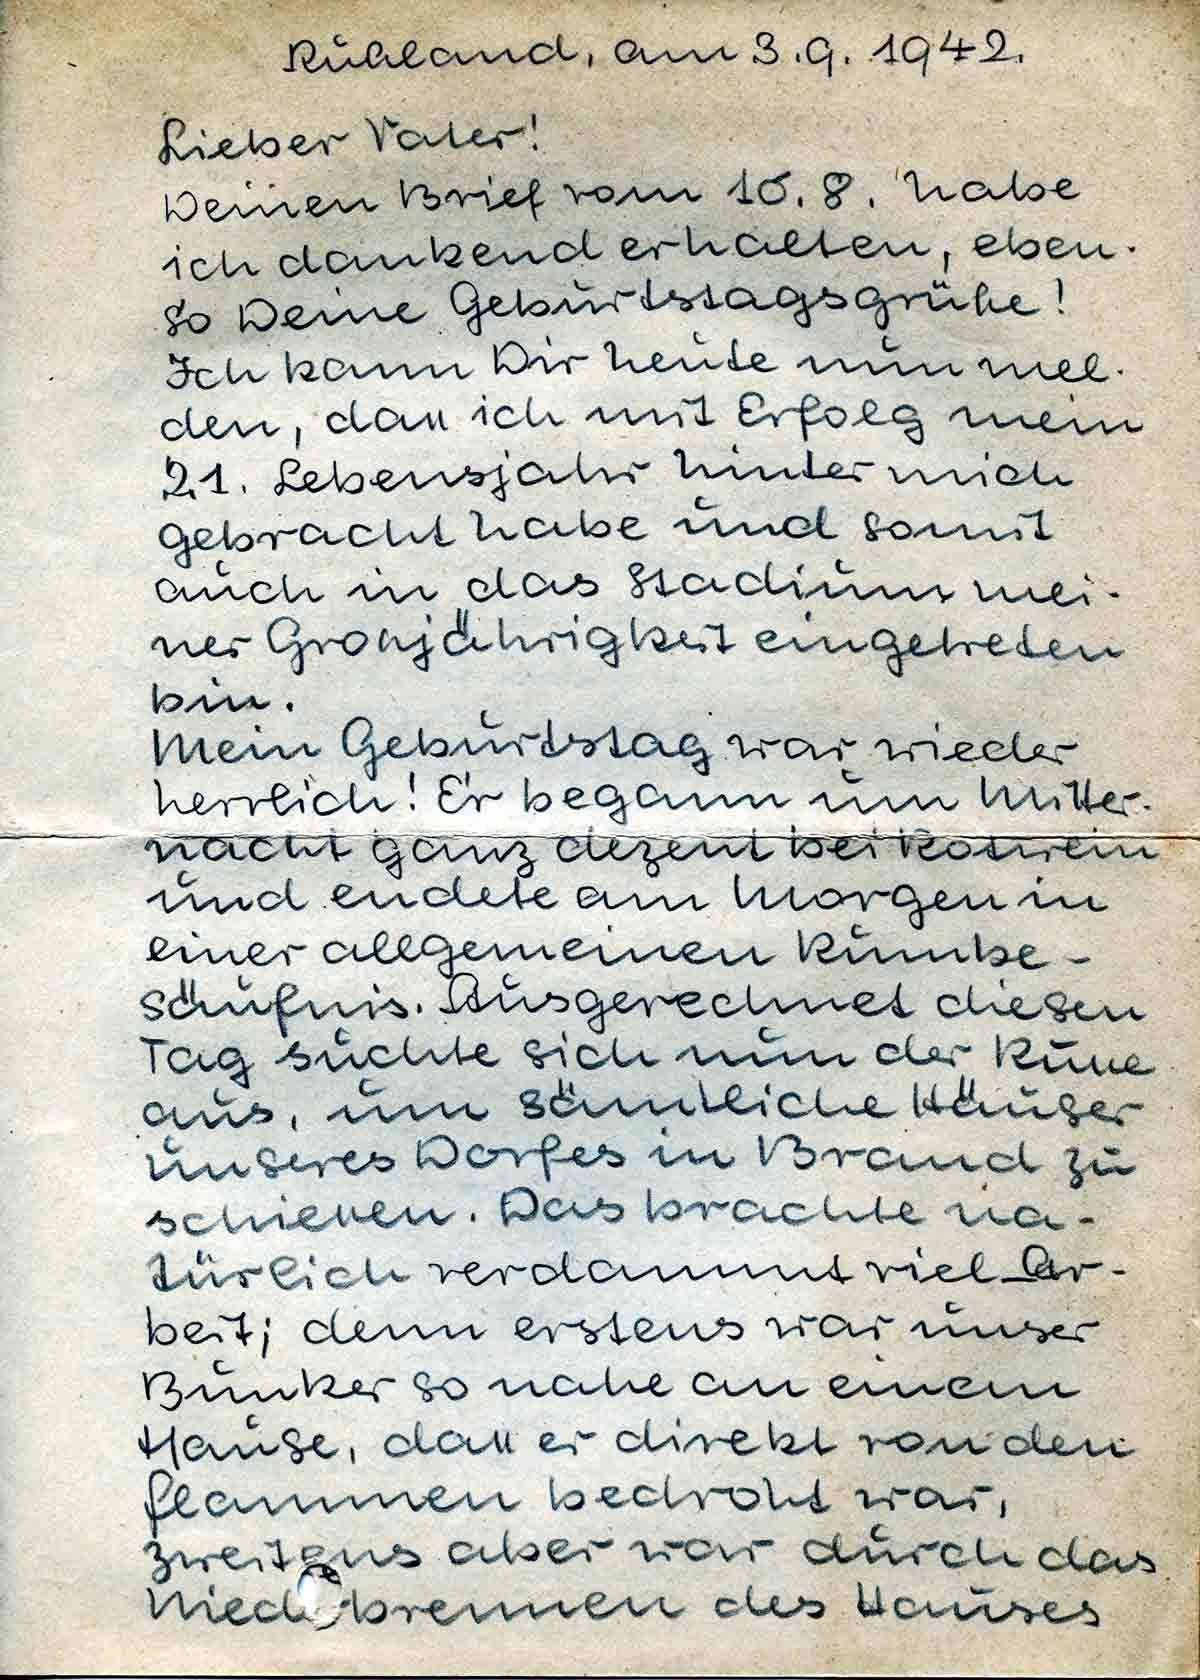 Rußland, am 3.9.1942.
Lieber Vater!
Deinen Brief vom 10. 8. habe
ich dankend erhalten, eben-
so Deine Geburtstagsgrüße!
Ich kann Dir heute nun mel-
den, daß ich mit Erfolg mein
21. Lebensjahr hinter mich
gebracht habe und somit
auch in das Stadium mei-
ner Großjährigkeit eingetreten
bin.
Mein Geburtstag war wieder
herrlich! Er begann um Mitter-
nacht ganz dezent bei Rotwein
und endete am Morgen in
einer allgemeinen Rumbe-
säufnis. Ausgerechnet diesen
Tag suchte sich nun der Russe
aus, um sämtliche Häuser
unseres Dorfes in Brand zu
schießen. Das brachte na-
türlich verdammt viel Ar-
beit; denn erstens war unser
Bunker so nahe an einem
Hause, daß er direkt von den
Flammen bedroht war,
zweitens aber war durch das
Niederbrennen des Hauses